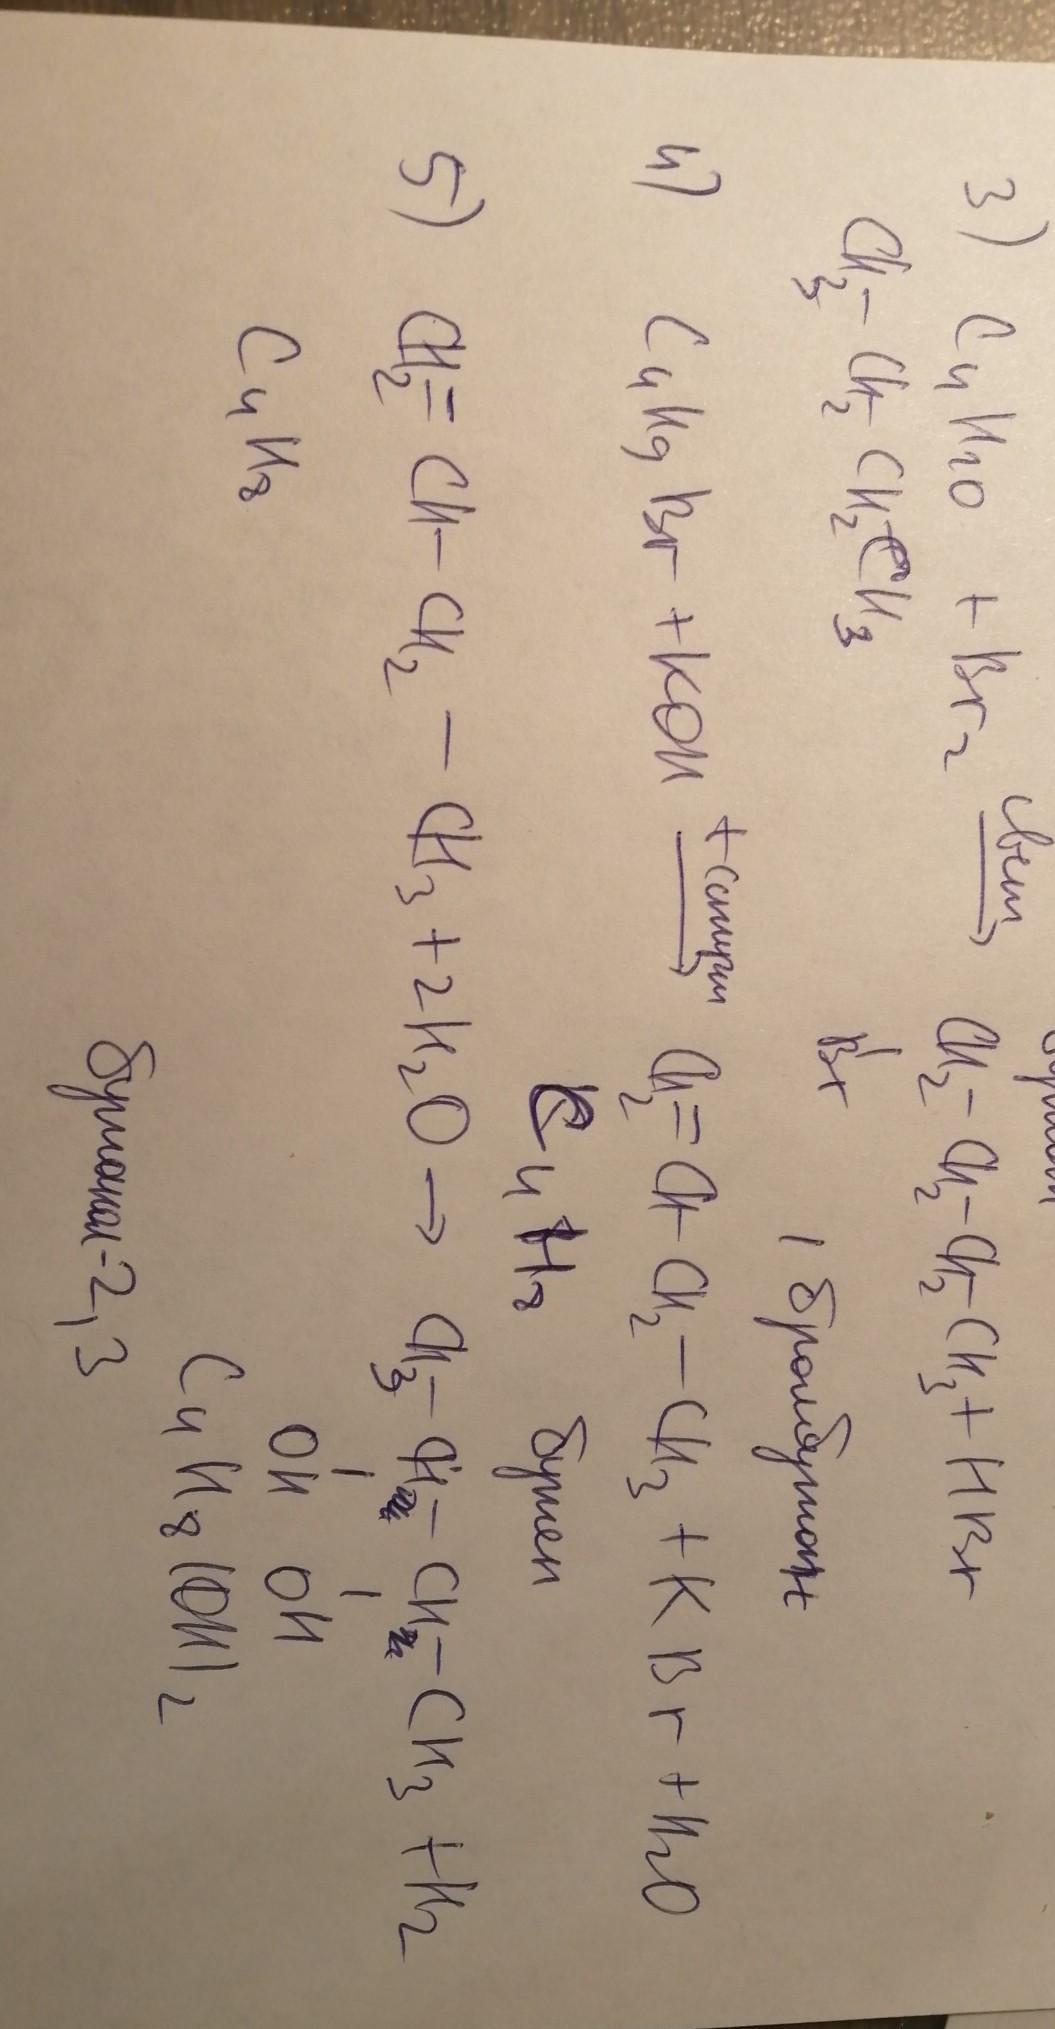 3) C4H10 + Br2 свет → CH2-CH2-CH2-CH3 + HBr
CH3-CH2-CH2-CH3
Br
1 бромбутан
4) C4H9Br + KOH + спирт → CH2=CH-CH2-CH3 + KBr + H2O
C4H8 бутен
5) CH2=CH-CH2-CH3 + 2H2O → CH3-CH-CH-CH3 + H2
OH OH
C4H8
C4H8(OH)2
бутанол-2,3